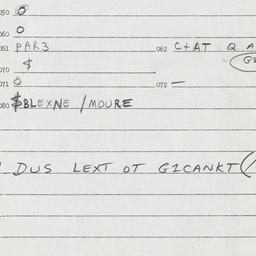 050 0
060 0
061 PAR3 062 C+AT Q A
070 $
071 0 072 —
080 $BLEXNE / MOURE
DUS LEXT OT GICANKT